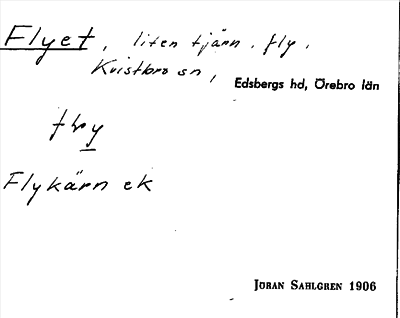 Flyet, liten tjärn. fly.
Kvistbro sn,
Edsbergs hd, Örebro län
Flykärn ek
JÖRAN SAHLGREN 1906